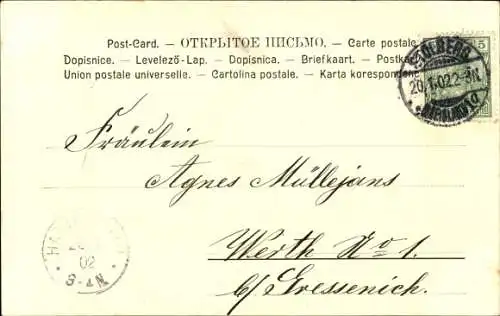 Post-Card. — ОТКРЫТОЕ ПИСЬМО. — Carte postale
Dopisnice. — Levelező-Lap. — Dopisnica. — Briefkaart. — Postkar
Union postale universelle. — Cartolina postale. — Karta korespondenc
5
STOLBERG
20. 1. 02. 2-3N
Fräulein
Agnes Müllejans
Werth No 1.
b/ Gressenich.
02
3-4N